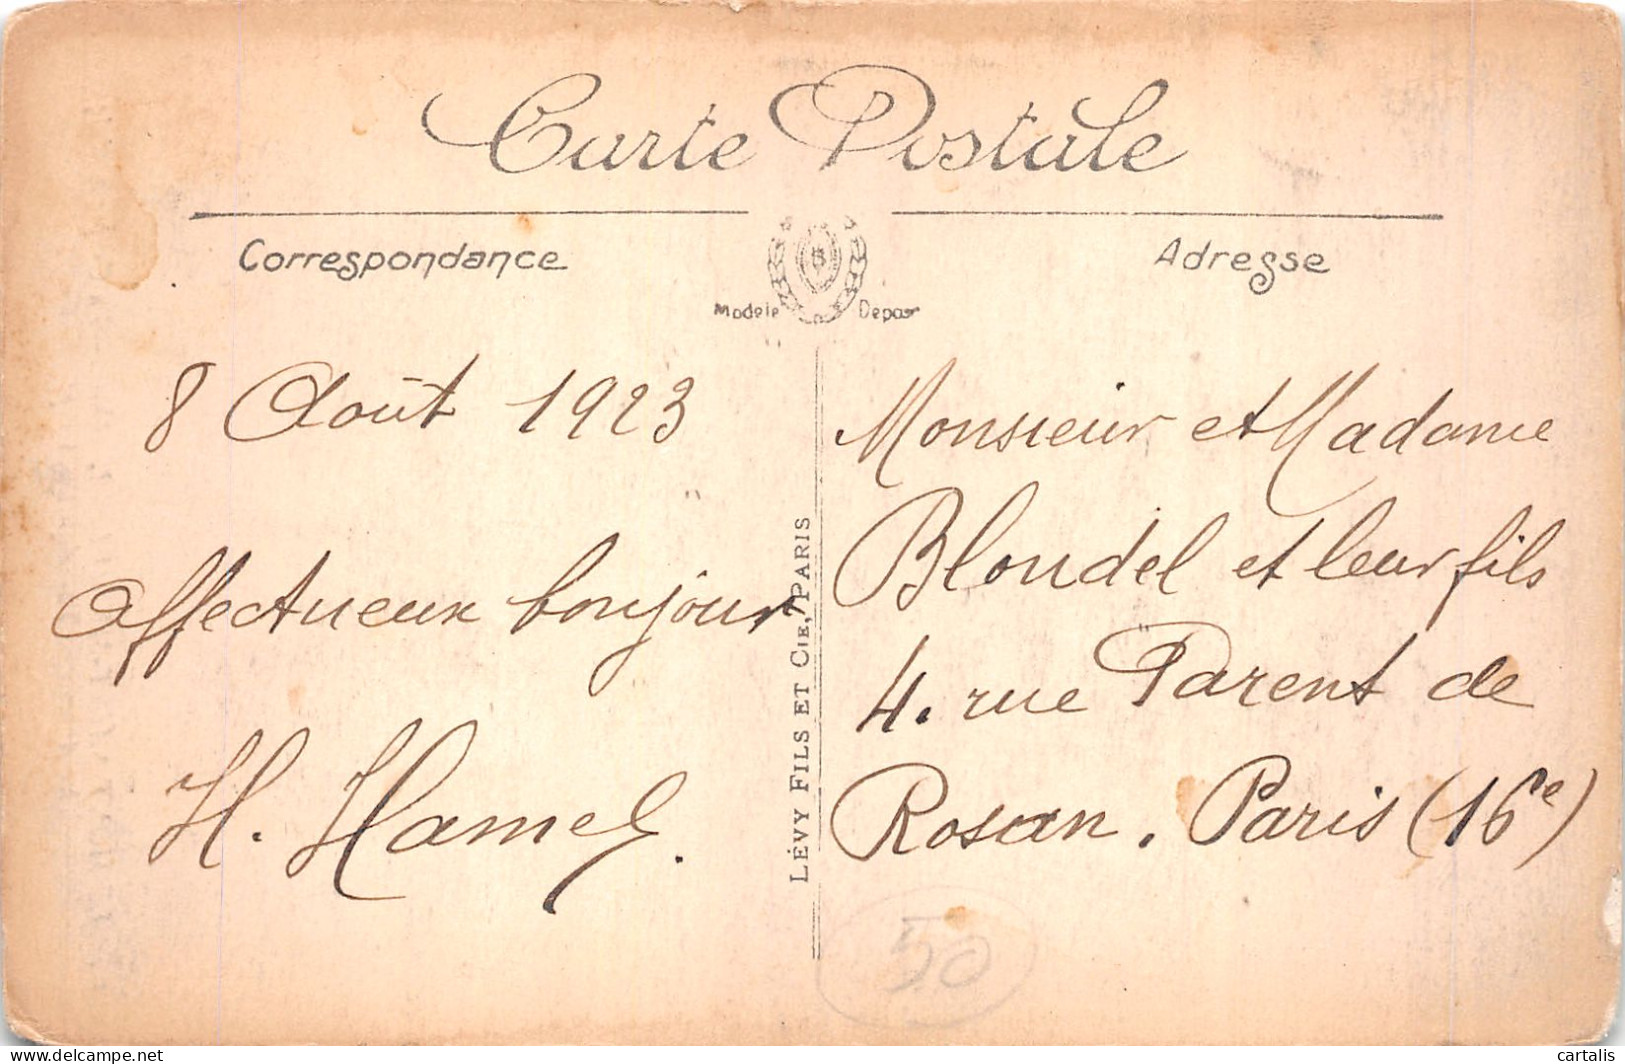 Carte Postale
Correspondance
Adresse
Modèle Déposé
8 Août 1923
Affectueux bonjour
H. Hamel.
LÉVY FILS ET CIE, PARIS
Monsieur et Madame
Blondel et leur fils
4. rue Parent de
Rosan. Paris (16e)
50
delcampe.net
cartalis